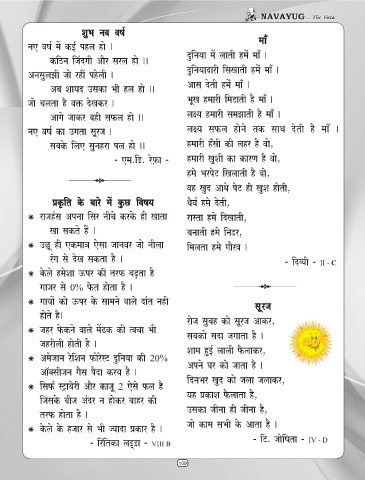 NAVAYUG .. The Voice
शुभ नव वर्ष
नए वर्ष में कई पहल हो ।
कठिन जिंदगी और सरल हो ।।
अनसुलझी जो रहीं पहेली ।
अब शायद उसका भी हल हो ।।
जो चलता है वक्त देखकर ।
आगे जाकर वही सफल हो ।।
नए वर्ष का उगता सूरज ।
सबके लिए सुनहरा पल हो ।।
- एम.डि. रेफ़ा -
प्रकृति के बारे में कुछ विषय
* राजहंस अपना सिर नीचे करके ही खाता
खा सकते हैं ।
* उल्लू ही एकमात्र ऐसा जानवर जो नीला
रंग से देख सकता है ।
* केले हमेशा ऊपर की तरफ बढ़ता है
गाजर से 0% फेत होता है ।
* गायों को ऊपर के सामने वाले दांत नही
होते है।
* जहर फेकने वाले मेंढक की त्वचा भी
जहरीली होती है ।
* अमेजान रेशिन फोरेस्ट दुनिया की 20%
ऑक्सीजन गैस पैदा करय है ।
* सिर्फ स्ट्राबेरी और काजू 2 ऐसे फल है
जिसके बीज अंदर न होकर बाहर की
तरफ होता है ।
* केले के हजार से भी ज्यादा प्रकार है ।
- रितिका लड्डा - VIII B
माँ
दुनिया में लाती हमें माँ ।
दुनियादारी सिखाती हमें माँ ।
आस देती हमें माँ ।
भूख हमारी मिटाती है माँ ।
लक्ष्य हमारी समझाती है माँ ।
लक्ष्य सफल होने तक साथ देती है माँ ।
हमारी हँसी की लहर है वो,
हमारी खुशी का कारण है वो,
हमे भरपेट खिलाती है वो,
वह खुद आधे पेट ही खुश होती,
धैर्य हमे देती,
रास्ता हमे दिखाती,
बनाती हमे निडर,
मिलता हमे गौरव ।
- दिव्यी - II - C
सूरज
रोज सुबह को सूरज आकर,
सबको सदा जगाता है ।
शाम हुई लाली फैलाकर,
अपने घर को जाता है ।
दिनभर खुद को जला जलाकर,
यह प्रकाश फैलाता है,
उसका जीना ही जीना है,
जो काम सभी के आता है ।
- टि. जोषिता - IV - D
109